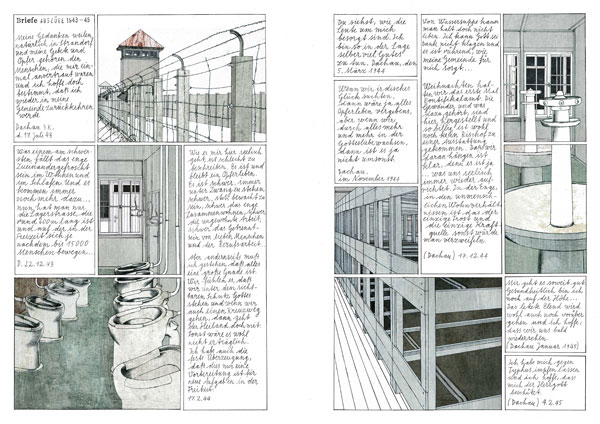 Briefe AUSZÜGE 1943-45
Meine Gedanken weilen
natürlich in Strandorf
und mein Gebet und
Opfer gehören den
Menschen, die mir ein-
mal anvertraut waren
und ich hoffe doch
bestimmt, daß ich
wieder in meine
Gemeinde zurückkehren
werde
Dachau 3K.
d. 17. Juli 43
Was einem am schwer-
sten fällt, das enge
Zueinandergepfercht
sein im Wohnen und
im Schlafen. Und es
kommen immer
noch mehr dazu...
nun hat man nur
die Lagerstrasse, die
rund 600 m lang ist
und auf der in der
Freizeit sich je
nachdem bis 15000
Menschen bewegen...
D. 22.12.43
Wie es mir hier seelisch
geht, ist schlecht zu
beschreiben. Es ist und
bleibt ein Opferleben.
Es ist schwer, immer
unter Zwang zu stehen
schwer, stets bewacht zu
sein, schwer das enge
Zusammenwohnen, schwer
die ungewohnte Arbeit,
schwer das Getrennt-
sein von lieben Menschen
und der Berufsarbeit.
Aber anderseits muß
ich gestehen, daß alles
eine große Gnade ist.
Wir fühlen es, daß
wir unter dem sicht-
baren Schutz Gottes
stehen und wenn wir
auch einen Kreuzweg
gehen, dann geht
der Heiland doch mit.
Sonst wäre es wohl
nicht erträglich.
Ich habe auch die
feste Überzeugung,
daß dies nur eine
Vorbereitung ist für
neue Aufgaben in der
Freiheit!
17.2.44
Du siehst, wie die
Leute um mich
besorgt sind. Ich
bin so in der Lage
selber viel Gutes
zu tun. Dachau, den
5. März 1944
Wenn wir irdisches
Glück suchten,
dann wäre ja alles
Opferleben vergebens,
aber wenn wir
durch alles mehr
und mehr in der
Gottesliebe wachsen,
dann ist es ja
nicht umsonst
Dachau,
im November 1944
Von Wassersuppe kann
man halt doch nicht
leben. Ich kann Gott sei
Dank nicht klagen und
es ist rührend, wie
meine Gemeinde für
mich sorgt...
Weihnachten hat-
ten wir das erste Mal
Pontifikalamt. Die
Gewänder und was
dazu gehört, sind
hier hergestellt und
so selber ist wohl
noch kein Bischof zu
einer Ausstattung
gekommen. Daß wir
daran hängen ist
klar, denn es ist ja
... was uns seelisch
immer wieder auf-
richtet. In der Enge,
in den unmensch-
lichen Wohnverhält-
nissen ist das der
einzige Trost und
die einzige Kraft-
quelle, sonst würde
man verzweifeln.
(Dachau) 17.12.44
Mir geht es soweit gut
Gesundheitlich bin ich
noch auf der Höhe...
Das letzte Elend wird
wohl auch noch vorüber
gehen und ich hoffe,
dass wir uns bald
wiedersehen.
(Dachau Januar 1945)
Ich habe mich gegen
Typhus impfen lassen
und ich hoffe, dass
mich der Herrgott
beschützt.
(Dachau) 9.2.45